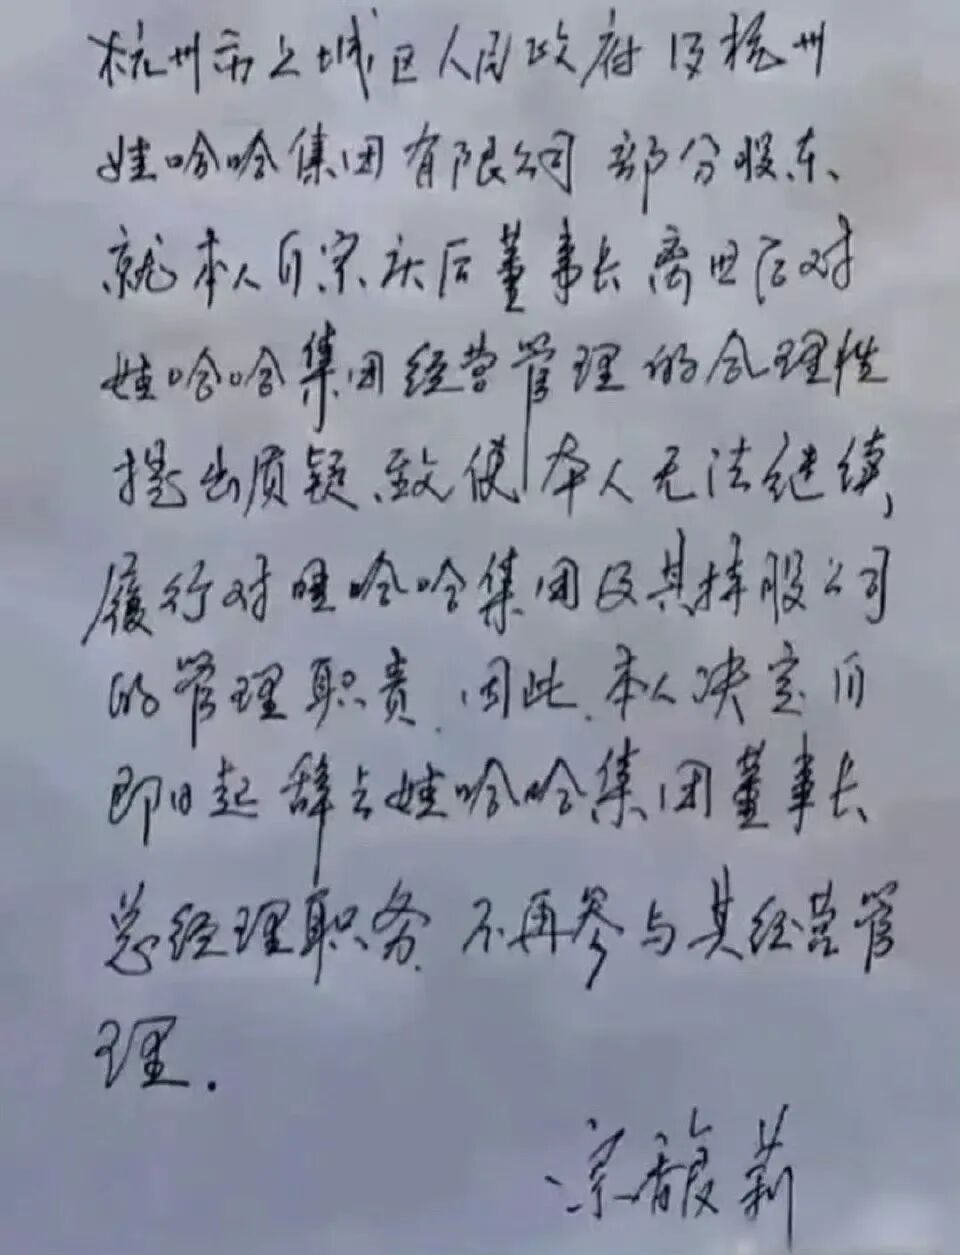 杭州市上城区人民政府及杭州
娃哈哈集团有限公司部分股东、
就本人自宗庆后董事长离世后对
娃哈哈集团经营管理的合理性
提出质疑、致使本人无法继续,
履行对哇哈哈集团及其持股公司
的管理职责.因此.本人决定自
即日起辞去娃哈哈集团董事长
总经理职务.不再参与其经营管
理.
宗馥莉